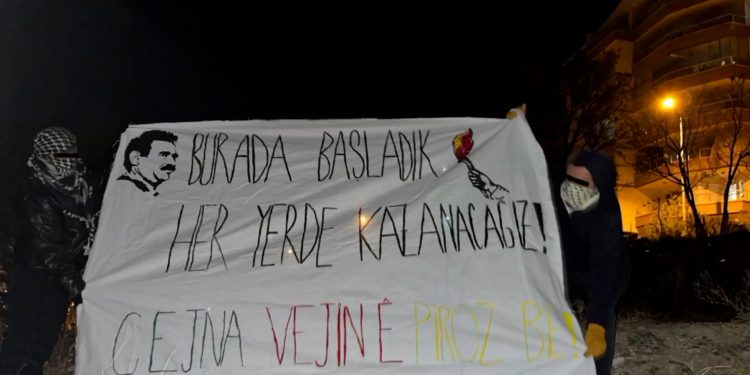 BURADA BAŞLADIK
HER YERDE KAZANACAĞIZ!
CEJNA VEJINÊ PIROZ BE!